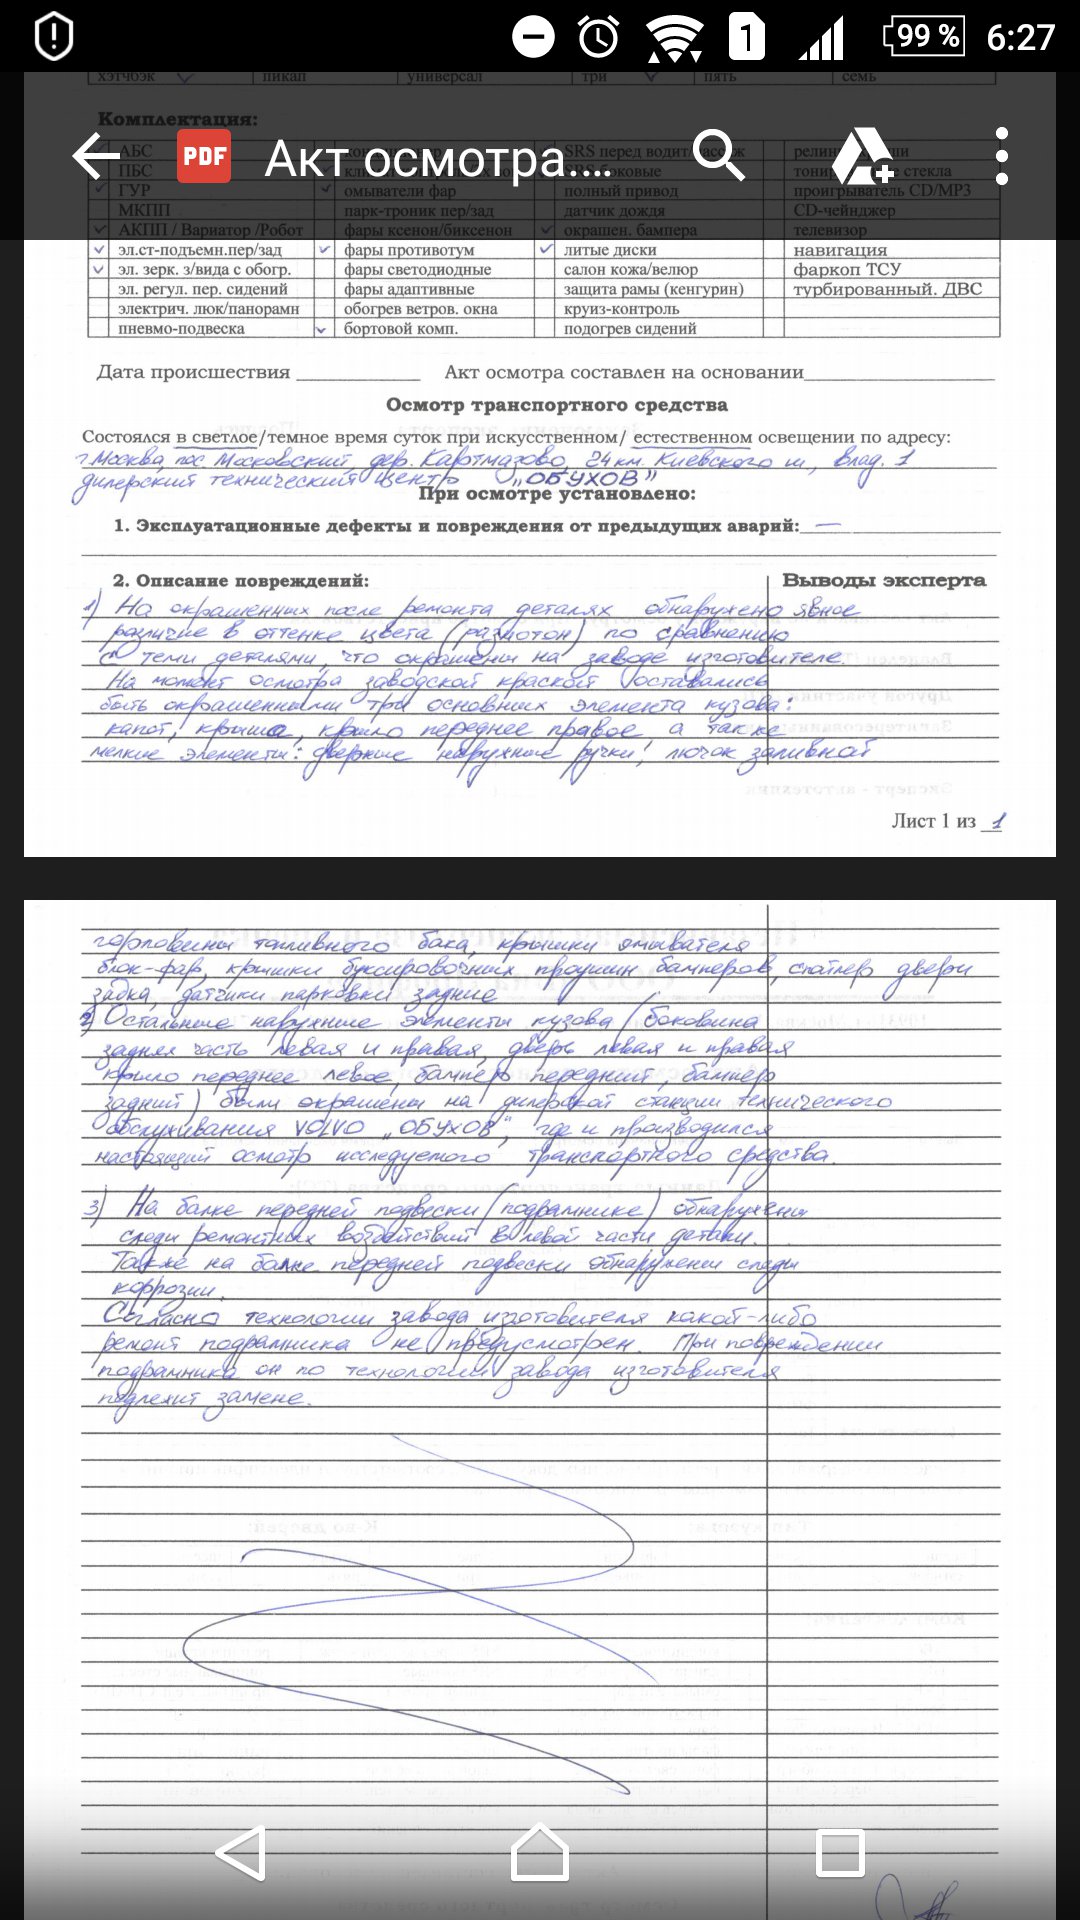 99 % 6:27
1
хэтчбэк пикап универсал три пять семь
Комплектация:
PDF Акт осмотра....
АБС SRS перед водит
ПБС SRS боковые стекла
ГУР омыватели фар полный привод проигрыватель CD/MP3
МКПП парк-троник пер/зад датчик дождя CD-чейнджер
АКПП / Вариатор /Робот фары ксенон/биксенон окрашен. бампера телевизор
эл.ст-подъемн.пер/зад фары противотум литые диски навигация
эл. зерк. з/вида с обогр. фары светодиодные салон кожа/велюр фаркоп ТСУ
эл. регул. пер. сидений фары адаптивные защита рамы (кенгурин) турбированный. ДВС
электрич. люк/панорамн обогрев ветров. окна круиз-контроль
пневмо-подвеска бортовой комп. подогрев сидений
Дата происшествия ____________ Акт осмотра составлен на основании__________________
Осмотр транспортного средства
Состоялся в светлое/темное время суток при искусственном/ естественном освещении по адресу:
г. Москва, пос. Московский, дер. Картмазово, 24 км. Киевского ш., влад. 1
дилерский технический центр „ОБУХОВ"
При осмотре установлено:
1. Эксплуатационные дефекты и повреждения от предыдущих аварий: —
2. Описание повреждений: Выводы эксперта
1) На окрашенных после ремонта деталях обнаружено явное
различие в оттенке цвета (разнотон) по сравнению
с теми деталями, что окрашены на заводе изготовителе.
На момент осмотра заводской краской оставались
быть окрашенными три основных элемента кузова:
капот, крыша, крыло переднее правое, а так же
мелкие элементы: дверные наружные ручки, лючок заливной
Лист 1 из 1
горловины топливного бака, крышки омывателя
блок-фар, крышки буксировочных проушин бамперов, спойлер двери
задка, датчики парковки задние
2) Остальные наружные элементы кузова (боковина
задняя часть левая и правая, дверь левая и правая
крыло переднее левое, бампер передний, бампер
задний) были окрашены на дилерской станции технического
обслуживания VOLVO „ОБУХОВ", где и производился
настоящий осмотр исследуемого транспортного средства.
3) На балке передней подвески (подрамнике) обнаружены
следы ремонтных воздействий в левой части детали.
Также на балке передней подвески обнаружены следы
коррозии.
Согласно технологии завода изготовителя какой-либо
ремонт подрамника не предусмотрен. При повреждении
подрамника он по технологии завода изготовителя
подлежит замене.